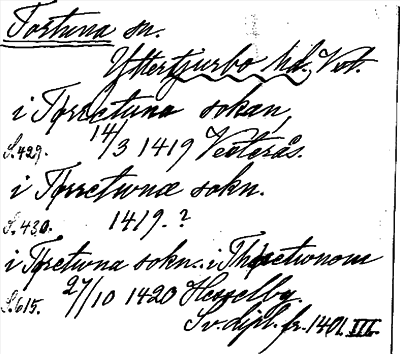 Tortuna sn.
Yttertjurbo hd. Vstm.
i Tørretuna sokan,
S. 429. 14/3 1419 Vesterås.
i Tørretwnæ sokn.
S. 430. 1419.?
i Tøretwna sokn. i Thøretwnom
S. 615. 27/10 1420 Hesselby.
Sv. dipl. fr. 1401. III.